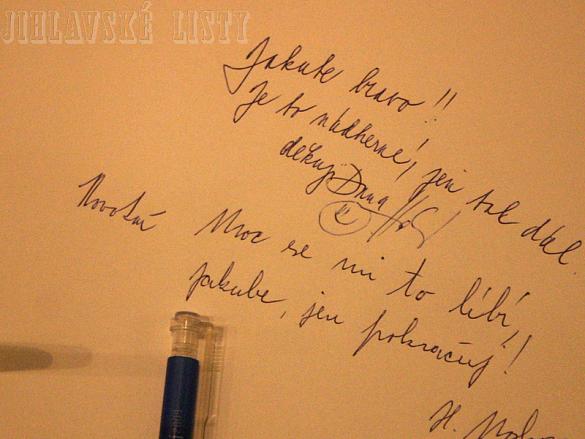 JIHLAVSKÉ LISTY
Jakube bravo!!
Je to nádherné, jen tak dál.
děkuji Dana
Novotná
Moc se mi to líbí,
Jakube, jen pokračuj!!
H.